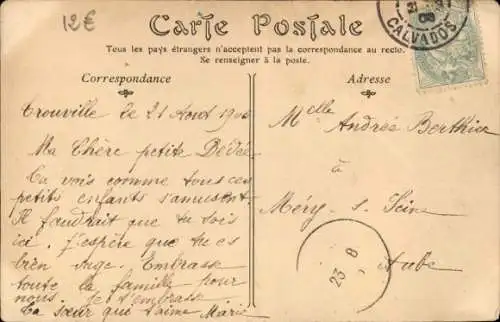 12€
Carte Postale
CALVADOS
Tous les pays étrangers n'acceptent pas la correspondance au recto.
Se renseigner à la poste.
Correspondance
Adresse
Trouville le 21 Aout
Ma Chère petite Dédée
Tu vois comme tous ces
petits enfants s'amusent
Il faudrait que tu sois
ici. J'espère que tu es
bien sage. Embrasse
toute la famille pour
nous. Je t'embrasse
Ta sœur qui t'aime Marie
Melle Andrée Berthier
à
Méry-s-Seine
Aube
23 8